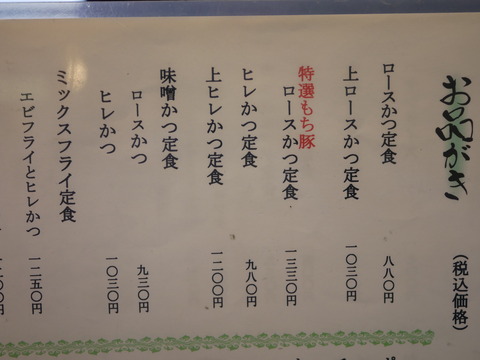 お品がき
(税込価格)
ロースかつ定食 八八〇円
上ロースかつ定食 一〇三〇円
特選もち豚
ロースかつ定食 一三三〇円
ヒレかつ定食 九八〇円
上ヒレかつ定食 一二〇〇円
味噌かつ定食
ロースかつ 九三〇円
ヒレかつ 一〇三〇円
ミックスフライ定食
エビフライとヒレかつ 一二五〇円